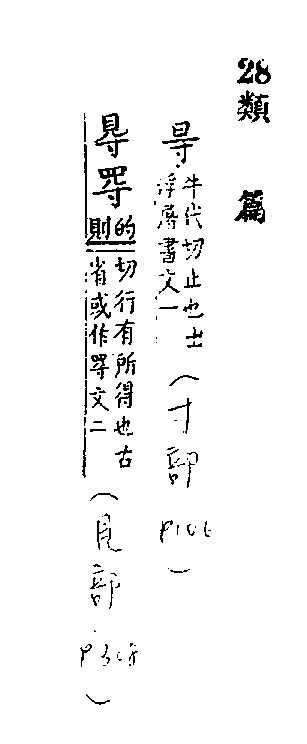 28類篇
㝵牛代切止也出
浮屠書文一
(寸部
䙷
的則切行有所得也古
省或作㝵文二
(見部